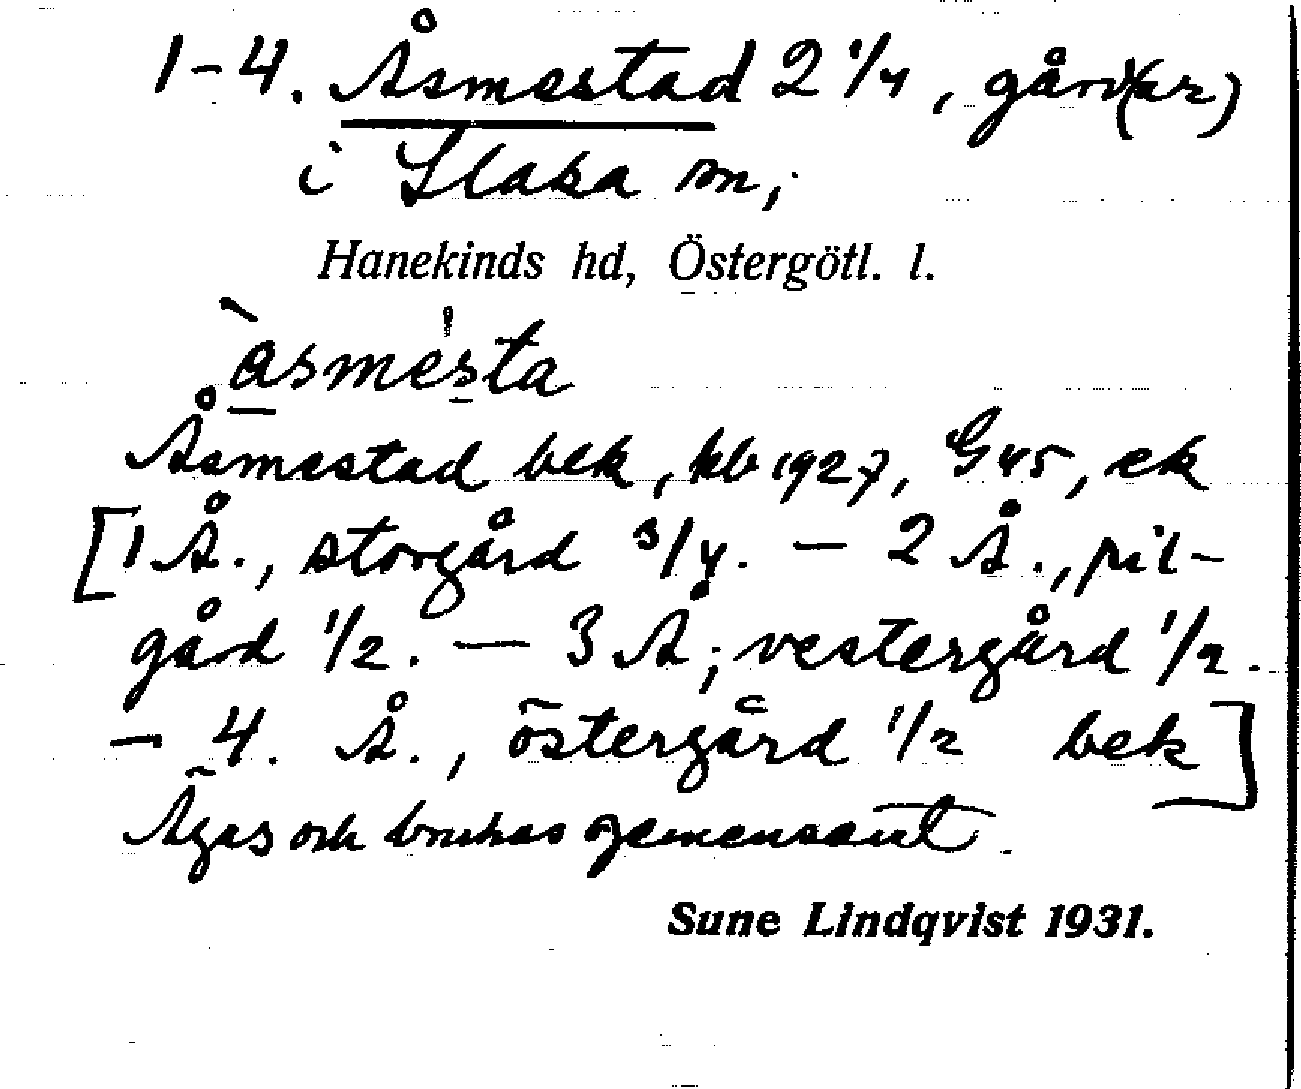 1-4. Åsmestad 2 1/4, gård(ar)
i Slaka sn,
Hanekinds hd, Östergötl. l.
`asme´sta
Åsmestad bek, kb 1927, G45, ek
[1 Å., storgård 3/4. — 2 Å., pil-
gård 1/2. — 3 Å; vestergård 1/2.
— 4. Å., östergård 1/2 bek]
Ägas och brukas gemensamt.
Sune Lindqvist 1931.